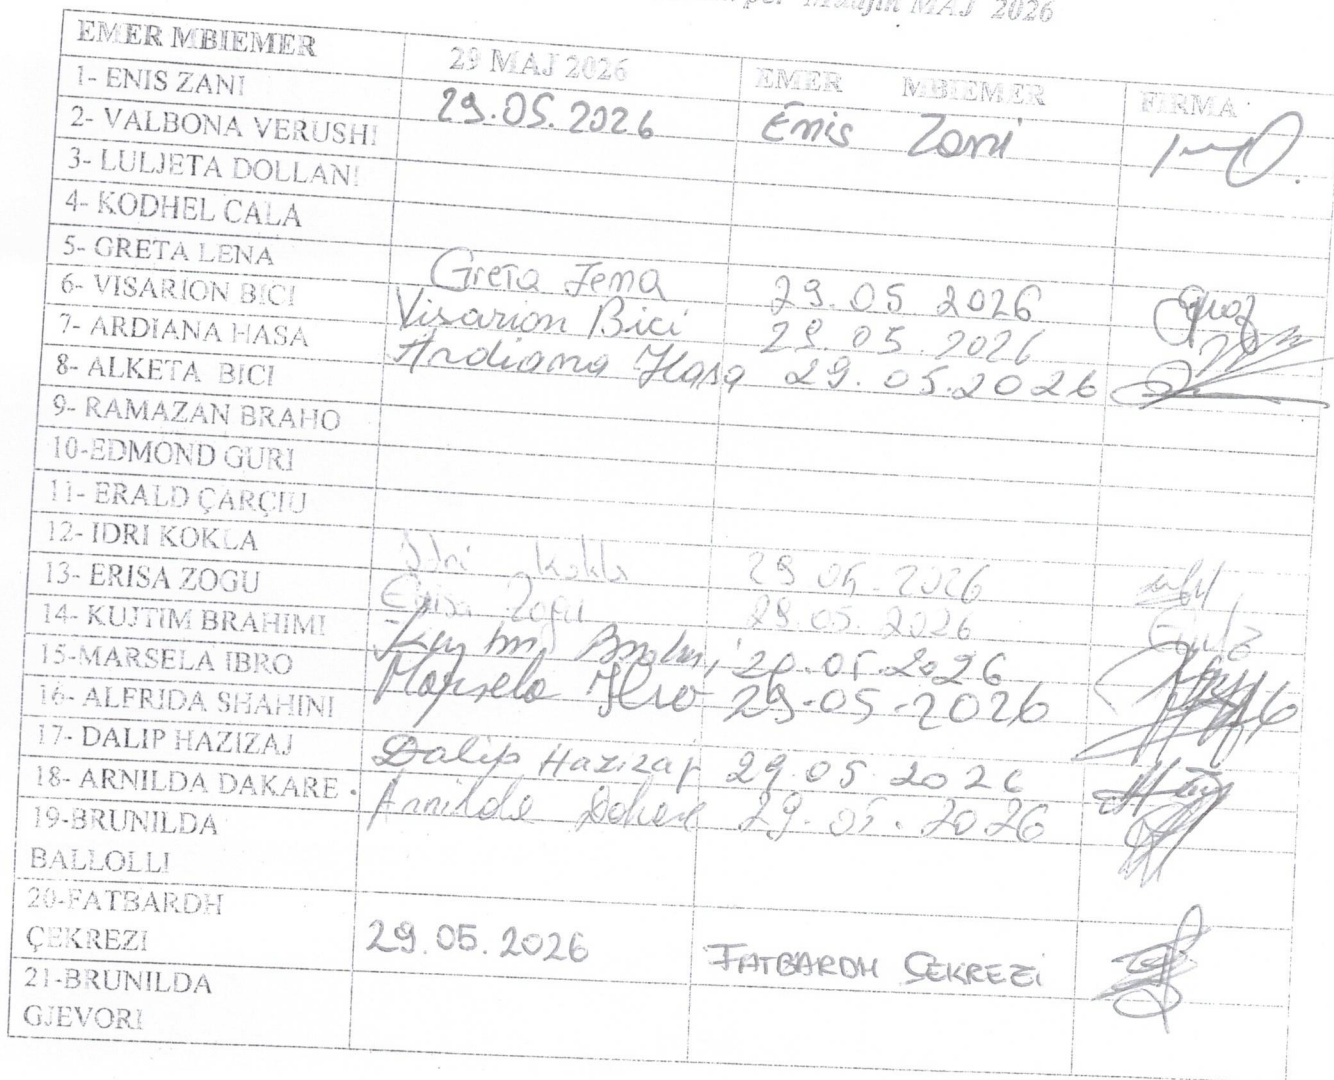 Muajin MAJ 2026
EMER MBIEMER 29 MAJ 2026 EMER MBIEMER FIRMA
1- ENIS ZANI 29.05.2026 Enis Zani
2- VALBONA VERUSHI
3- LULJETA DOLLANI
4- KODHEL CALA
5- GRETA LENA Greta Lena 29.05 2026
6- VISARION BICI Visarion Bici 29.05.2026
7- ARDIANA HASA Ardiana Hasa 29.05.2026
8- ALKETA BICI
9- RAMAZAN BRAHO
10-EDMOND GURI
11- ERALD ÇARÇIU
12- IDRI KOKLA Idri kokla 29 05.2026
13- ERISA ZOGU Erisa Zogu 29.05.2026
14- KUJTIM BRAHIMI
15-MARSELA IBRO Marsela Ibro 29-05-2026
16- ALFRIDA SHAHINI
17- DALIP HAZIZAJ Dalip Hazizaj 29 05 2026
18- ARNILDA DAKARE Arnilda Dakare 29.05.2026
19-BRUNILDA
BALLOLLI
20-FATBARDH
ÇEKREZI 29.05.2026 FATBARDH ÇEKREZI
21-BRUNILDA
GJEVORI